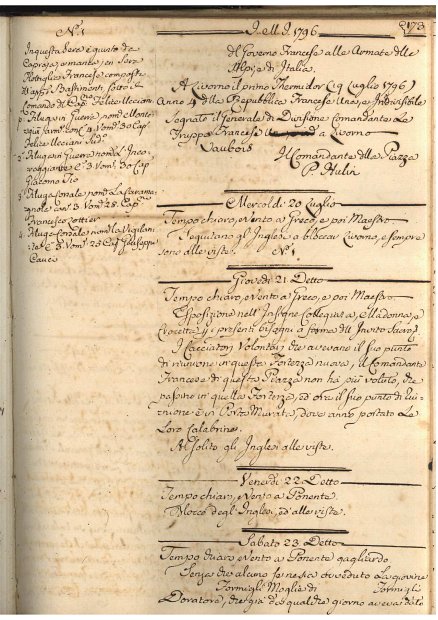 N.º 1
In questa Sera è giunto da
Capraja
Flottiglia Francese composta
di Bastimenti, sotto il
Comando del Cap.
Feluga in Guerra nom.ª
Cap.
Feluga in Guerra nom.ª
Cap.
Giacomo
Feluga Corsale nom.ª La
con. 3. Vom. 28. Cap.
Francesco
Feluga Corsale nom.ª la Vigilan
te C. 3. Vom. 25 Cap. Giuseppe
I. e M. I. 1796
173
del Governo Francese alle Armate delle
Alpi, e di Italia.
A Livorno il primo Thermidor (19 Luglio 1796)
Anno 4 della Repubblica Francese Una, e Indivisibile
Segnato il Generale di Divisione Comandante Le
Truppe Francese a Livorno
Vaubois
Il Comandante della Piazza
P. Hulin
Mercoldi 20 Luglio
Tempo chiaro, e vento a Greco, e poi Maestro
Seguitano gl'Inglesi a bloccar Livorno, e sempre
sono alle viste. N.º 1
Giovedi 21 Detto
Tempo chiaro, e vento a Greco, e poi Maestro.
Esposizione nell'Insigne Collegiata, e alla donna, e
Crocetta p i presenti bisogni a forma dell'Invito Sacro
I Cacciatori Volontarj che avevano il suo punto
di riunione in questa Fortezza nuova, il Comandante
Francese di questa Piazza non ha più voluto, che
passino in quella Fortezza, ed ora il suo punto di Riu-
nione è in Porta Murata, dove anno portato Le
Loro Calabrine.
Al Solito gli Inglesi alle viste.
Venerdi 22 Detto
Tempo chiaro, e vento a Ponente.
Blocco degl'Inglesi, ed alle viste.
Sabato 23 Detto
Tempo chiaro e vento a Ponente gagliardo
Senza che alcuno se ne sia avveduto La giovine
Formigli Moglie di Formigli
Doratore, che già da qualche giorno aveva dato